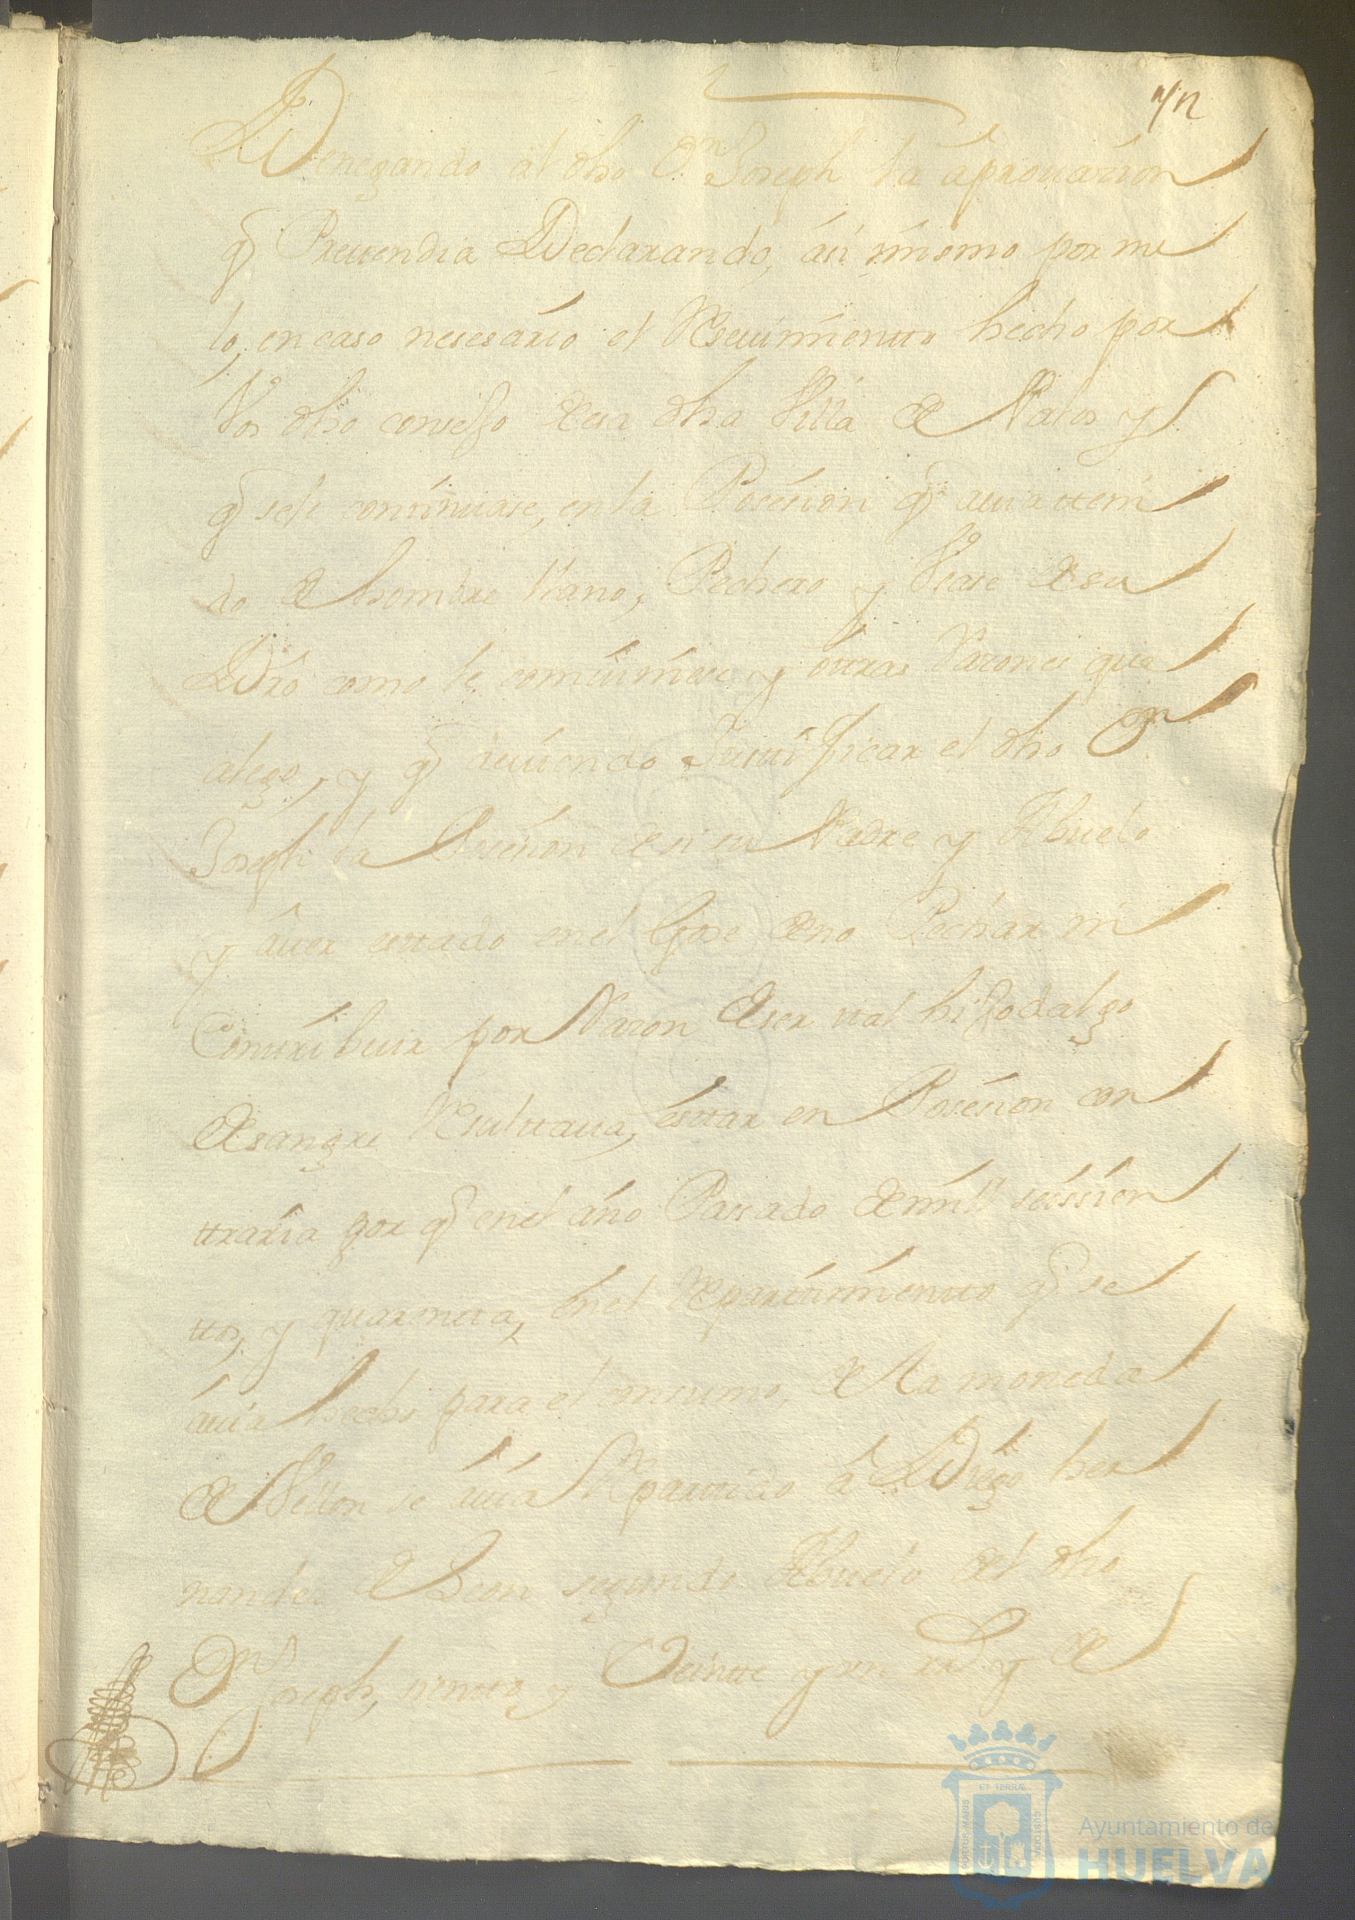 Denegando al dho Dn Joseph la aprouazion
q Prettendia Declarando, asi mismo por nu
lo, en caso nesesario el Reseuimientto hecho por
Vos dho consejo de esa dha Villa de Palos y
q se le continuase, en la Posesion q auia tteni
do de hombre llano, Pechero y Vsase de su
Dro como le combiniese y ottras Razones que
alego, y q deuiendo Justtificar el dho Dn
Joseph la Posesion de si su Padre y Abuelo
y auer esttado en el Gose de no Pechar ni
Conttribuir por Razon de ser ttal hijodalgo
de sangre Resulttaua, esttar en Posesion con
ttraria por q en el año Passado de mill seissien
ttos, y quarentta, en el Reparttimientto q se
auia hecho para el consumo, de la moneda
de Vellon se auia Reparttido a Diego her
nandes de Leon segundo Abuelo del dho
Dn Joseph, sientto y Veintte y un rs y de
Ayuntamiento de
HUELVA